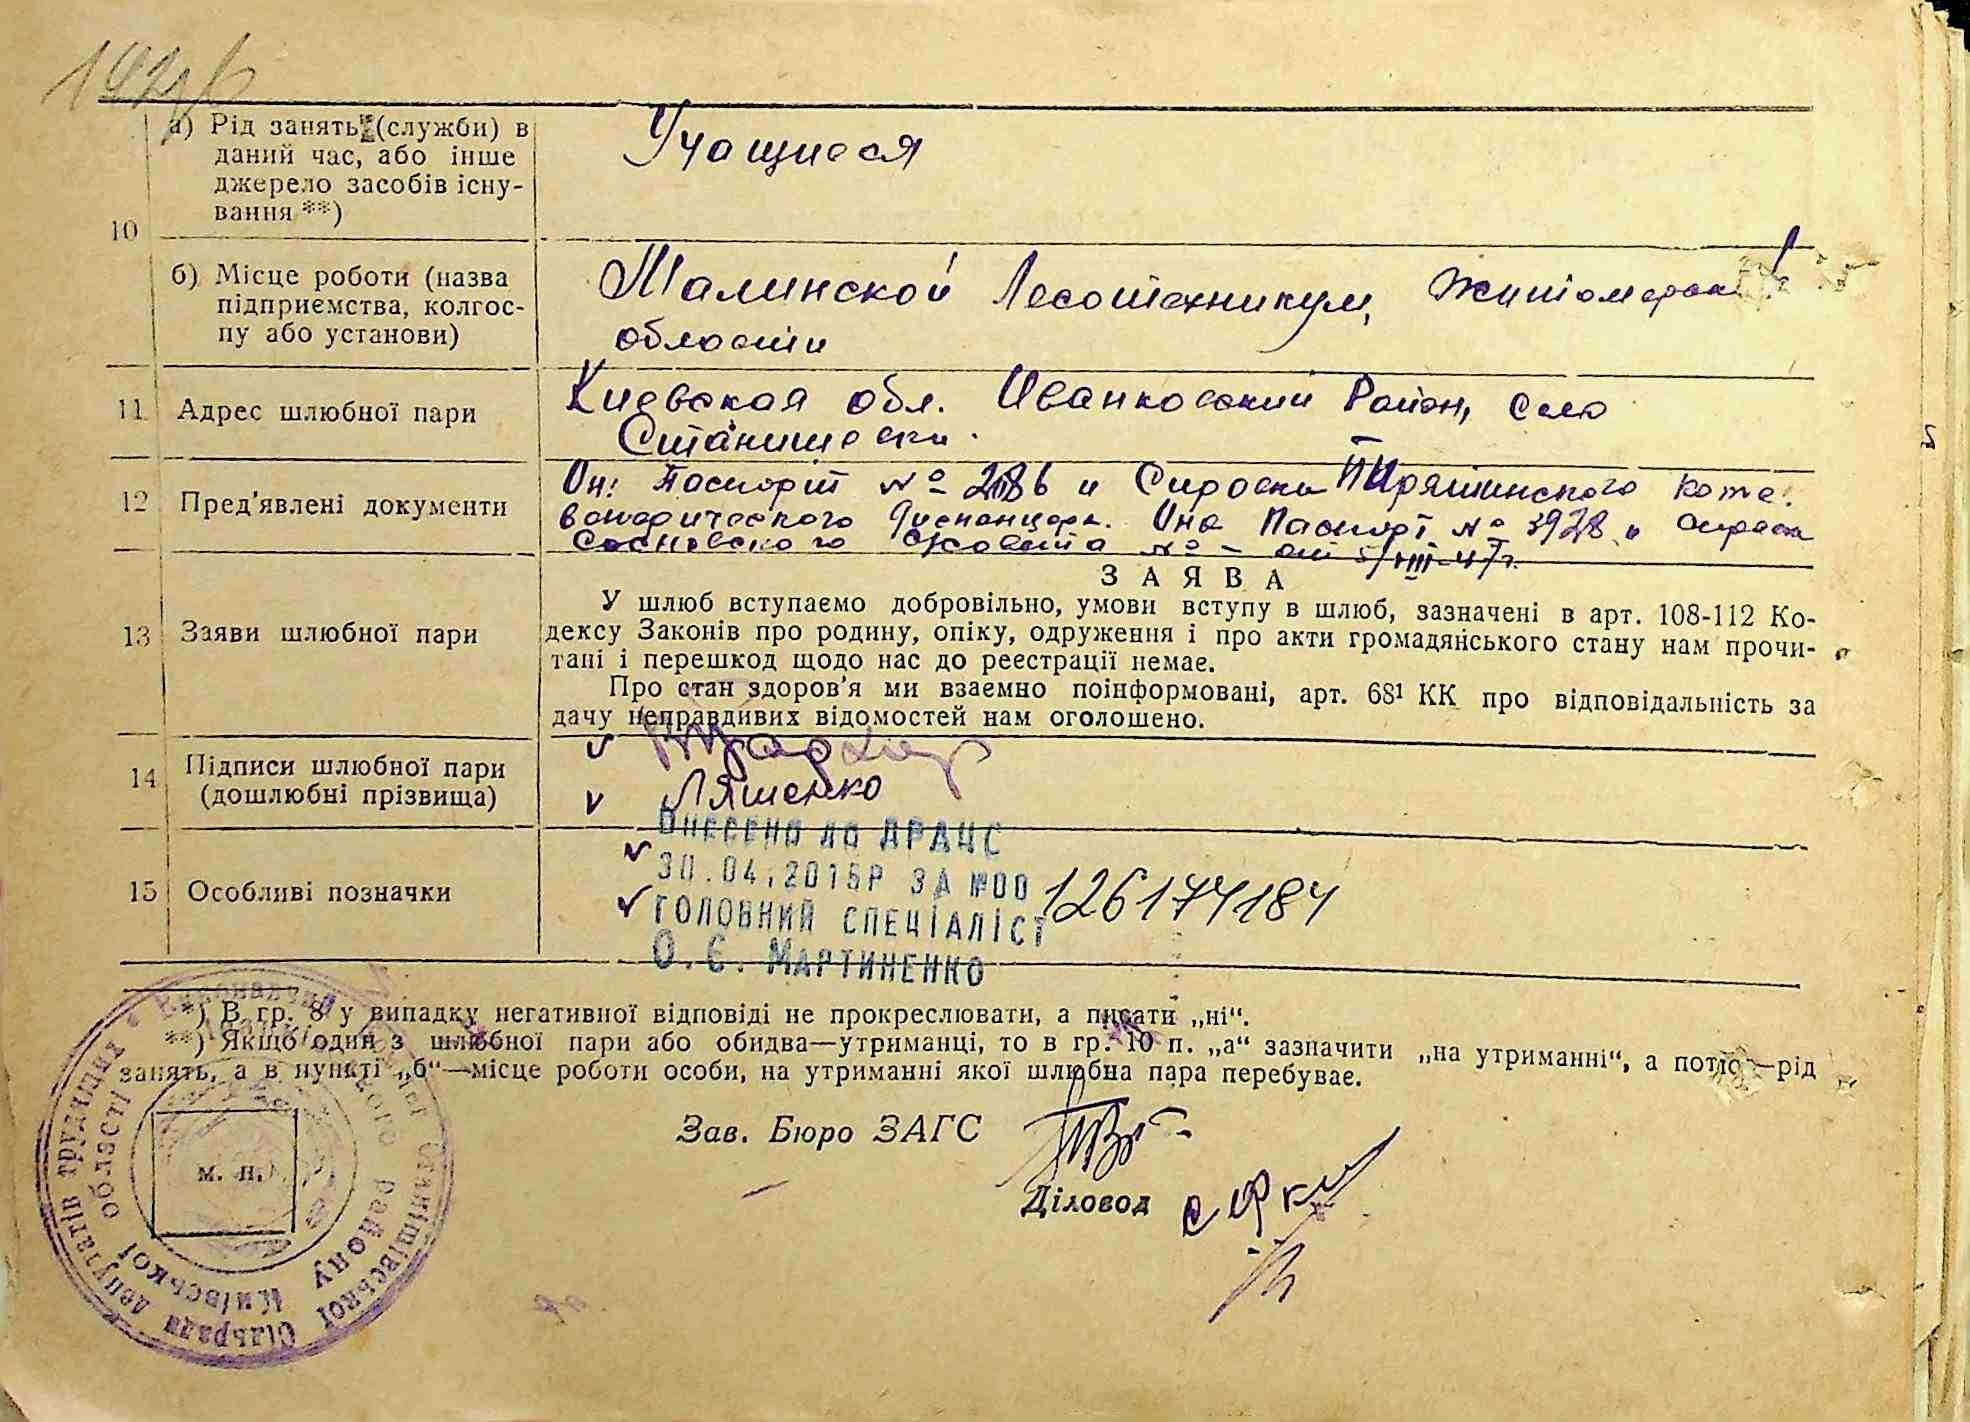 а) Рід занять (служби) в
даний час, або інше
джерело засобів існу-
вання **)
Учащиеся
10
б) Місце роботи (назва
підприємства, колгос-
пу або установи)
Малинской Лесотехникум,
области
11 Адрес шлюбної пари
Киевская обл. Иванковский Район, село
12 Пред'явлені документи
Он: Паспорт № и
Диспансера. Она Паспорт № 3928 и
Сосновского №
З А Я В А
13 Заяви шлюбної пари
У шлюб вступаємо добровільно, умови вступу в шлюб, зазначені в арт. 108-112 Ко-
дексу Законів про родину, опіку, одруження і про акти громадянського стану нам прочи-
тані і перешкод щодо нас до реестрації немає.
Про стан здоров'я ми взаємно поінформовані, арт. 68¹ КК про відповідальність за
дачу неправдивих відомостей нам оголошено.
14 Підписи шлюбної пари
(дошлюбні прізвища)
Ляшенко
15 Особливі позначки
ВНЕСЕНО ДО ДРАЦС
30.04.2015Р ЗА №00 126174184
ГОЛОВНИЙ СПЕЦІАЛІСТ
О. Є. МАРТИНЕНКО
*) В гр. 8 у випадку негативної відповіді не прокреслювати, а писати „ні“.
**) Якщо один з шлюбної пари або обидва—утриманці, то в гр. 10 п. „а“ зазначити „на утриманні“, а потім—рід
занять, а в пункті „б“—місце роботи особи, на утриманні якої шлюбна пара перебуває.
Зав. Бюро ЗАГС
Діловод
м. п.
Сільрада депутатів трудящих
Станішівської
району Київської області